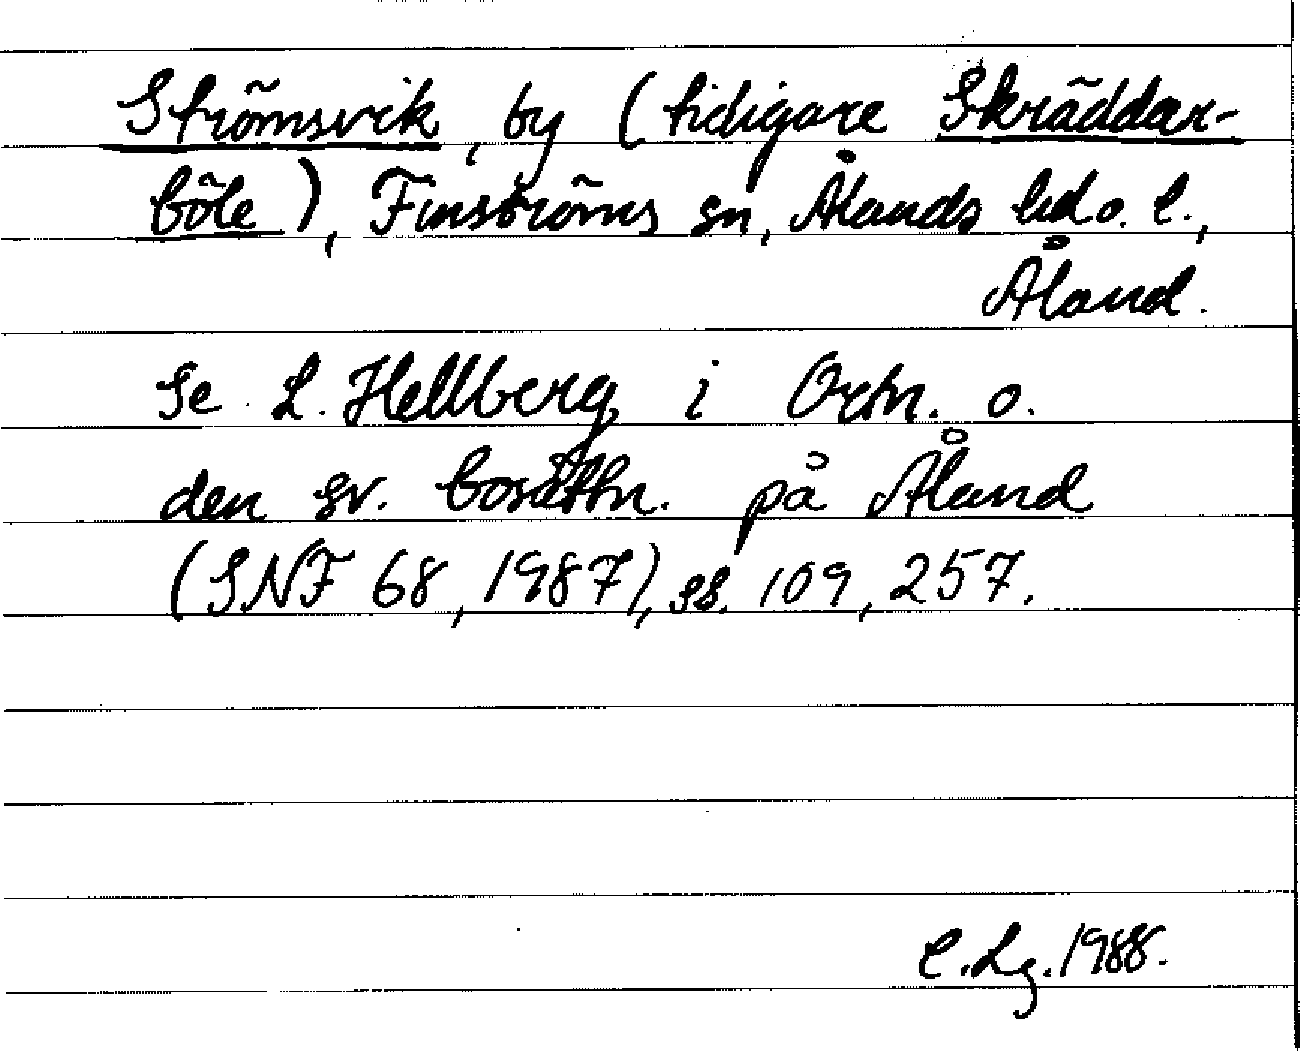 Strömsvik, by (tidigare Skräddar-
böle), Finströms sn, Ålands hd o. l.,
Åland.
Se L. Hellberg i Ortn. o.
den sv. bosättn. på Åland
(SNF 68, 1987), ss. 109, 257.
C.Lg. 1988.